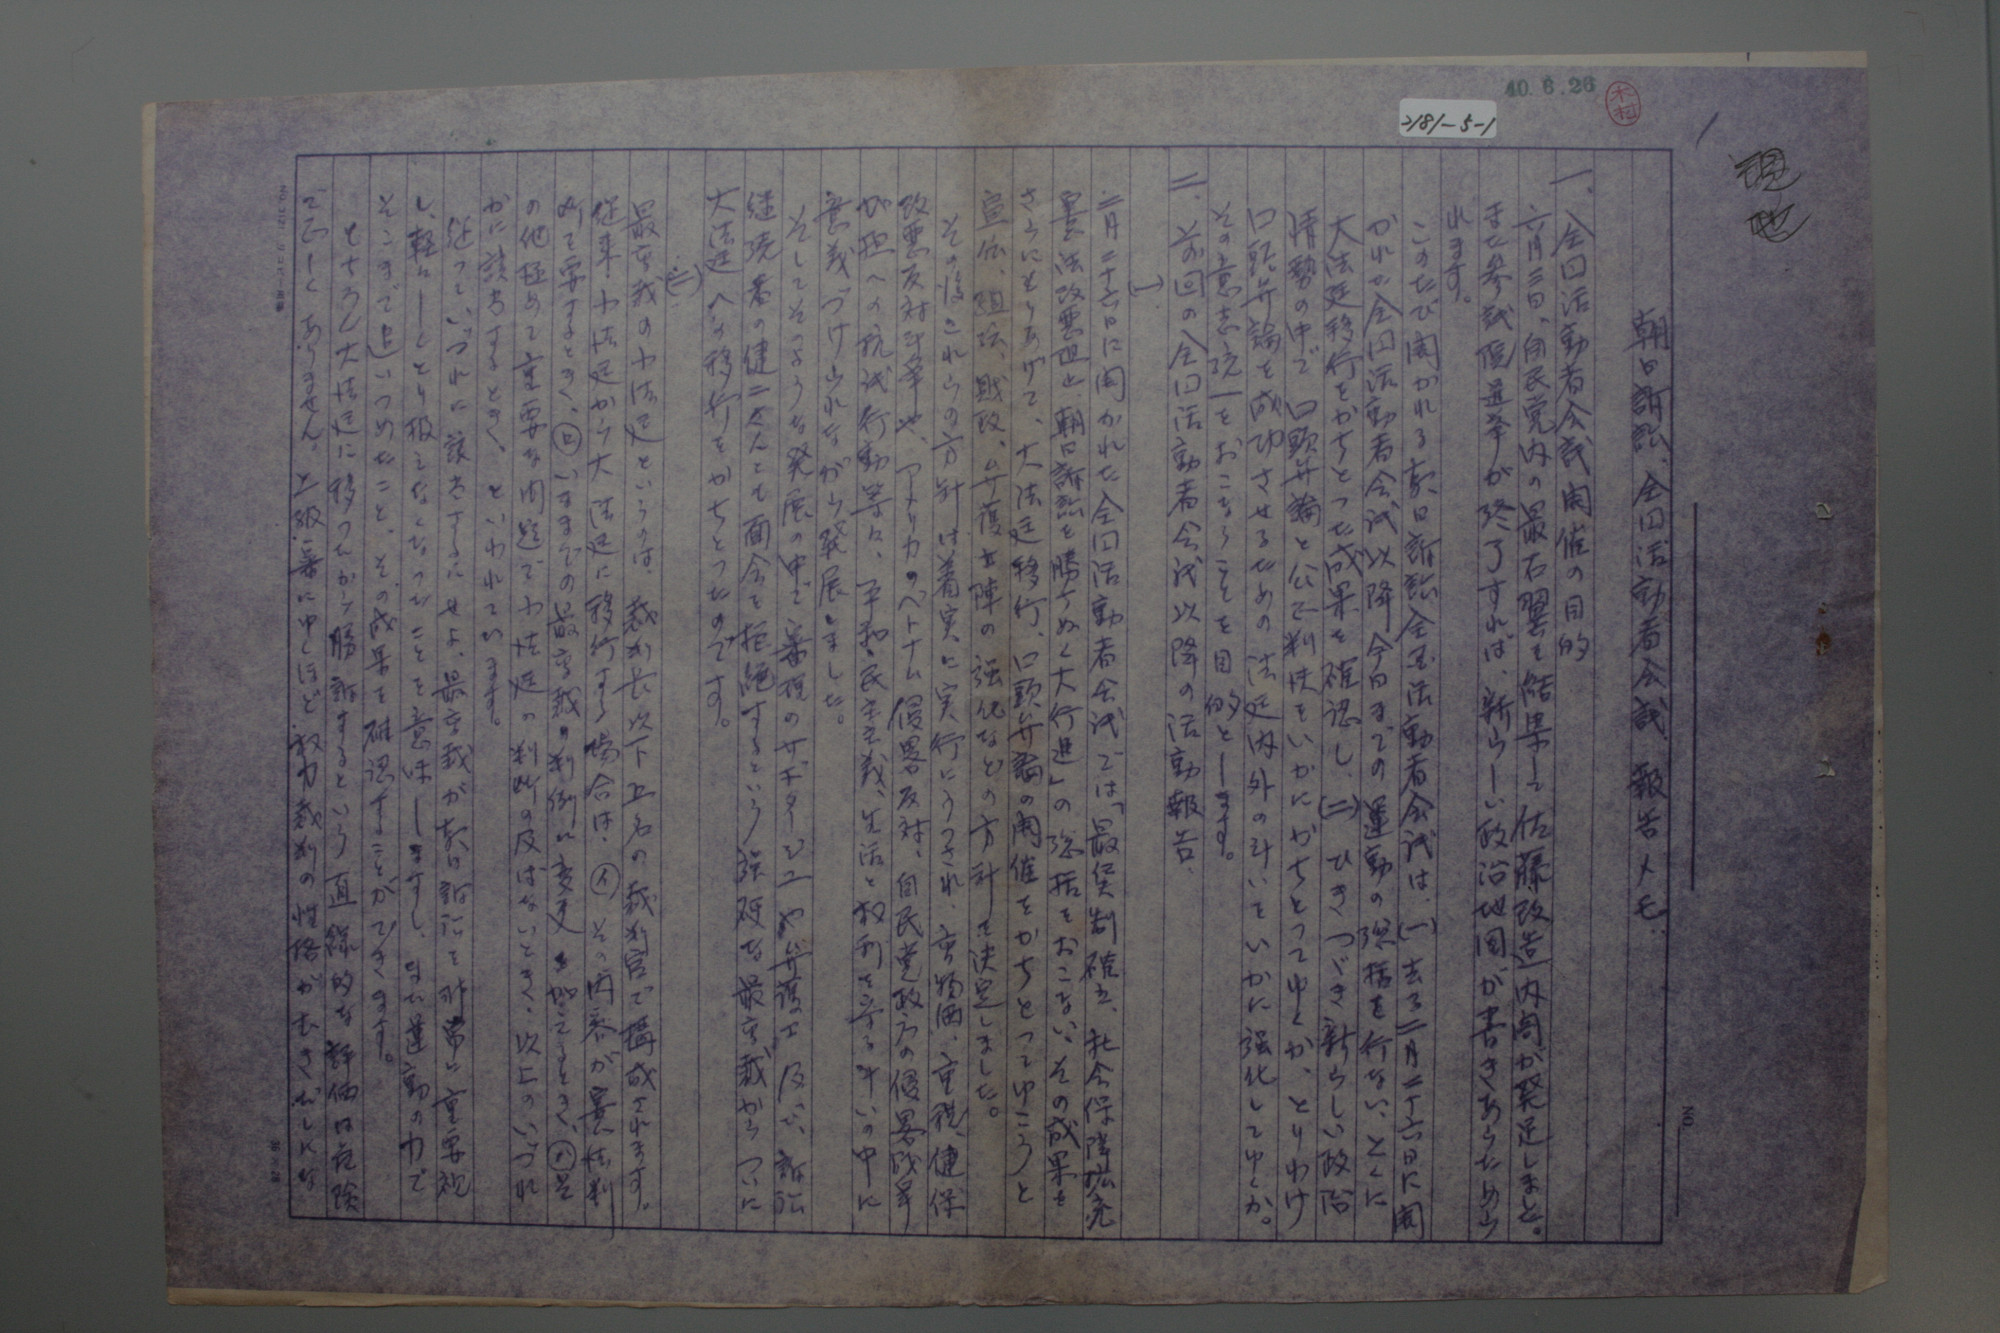 40.6.26
木村
2181-5-1
朝日訴訟、全国活動者会議、報告メモ.
一、全国活動者会議開催の目的
六月三日、自民党内の最右翼を結集して佐藤改造内閣が発足しました。
また参議院選挙が終了すれば、新らしい政治地図が書きあらためら
れます。
このたび開かれる朝日訴訟全国活動者会議は、(一)去る二月二十六日に開
かれた全国活動者会議以降今日までの運動の総括を行ない、とくに
大法廷移行をかちとった成果を確認し、(二)ひきつづき新らしい政治
情勢の中で口頭弁論と公正判決をいかにかちとってゆくか、とりわけ
口頭弁論を成功させるための法廷内外の斗いをいかに強化してゆくか。
その意志統一をおこなうことを目的とします。
二、前回の全国活動者会議以降の活動報告.
(一)
二月二十六日に開かれた全国活動者会議では「最賃制確立、社会保障拡充
憲法改悪阻止、朝日訴訟を勝ちぬく大行進」の総括をおこない、その成果を
さらにもりあげて、大法廷移行、口頭弁論の開催をかちとってゆこうと
宣伝、組織、財政、弁護士陣の強化などの方針を決定しました。
その後これらの方針は着実に実行にうつされ、高物価、重税、健保
改悪反対斗争や、アメリカのベトナム侵略反対、自民党政府の侵略戦争
加担への抗議行動等々、平和と民主主義、生活と権利を守る斗いの中に
意義づけられながら発展しました。
そしてそのような発展の中で審理のサボタージュや弁護士及び、訴訟
継続者の健二夫人とも面会を拒絶するという強硬な最高裁からついに
大法廷への移行をかちとったのです。
(二)
最高裁の小法廷というのは、裁判長以下五名の裁判官で構成されます。
従来小法廷から大法廷に移行する場合は、㋑その内容が憲法判
断を要するとき、㋺いままでの最高裁の判例に変更を加えるとき、㋩そ
の他極めて重要な問題で小法廷の判断の及ばないとき、以上のいづれ
かに該当するとき、といわれています。
従っていづれに該当するにせよ、最高裁が朝日訴訟を非常に重要視
し、軽々しくとり扱えなくなったことを意味しますし、なお運動の力で
そこまで追いつめたこと、その成果を確認することができます。
もちろん大法廷に移ったから勝訴するという直線的な評価は危険
で正しくありません。上級審にゆくほど権力裁判の性格がむきだしにな